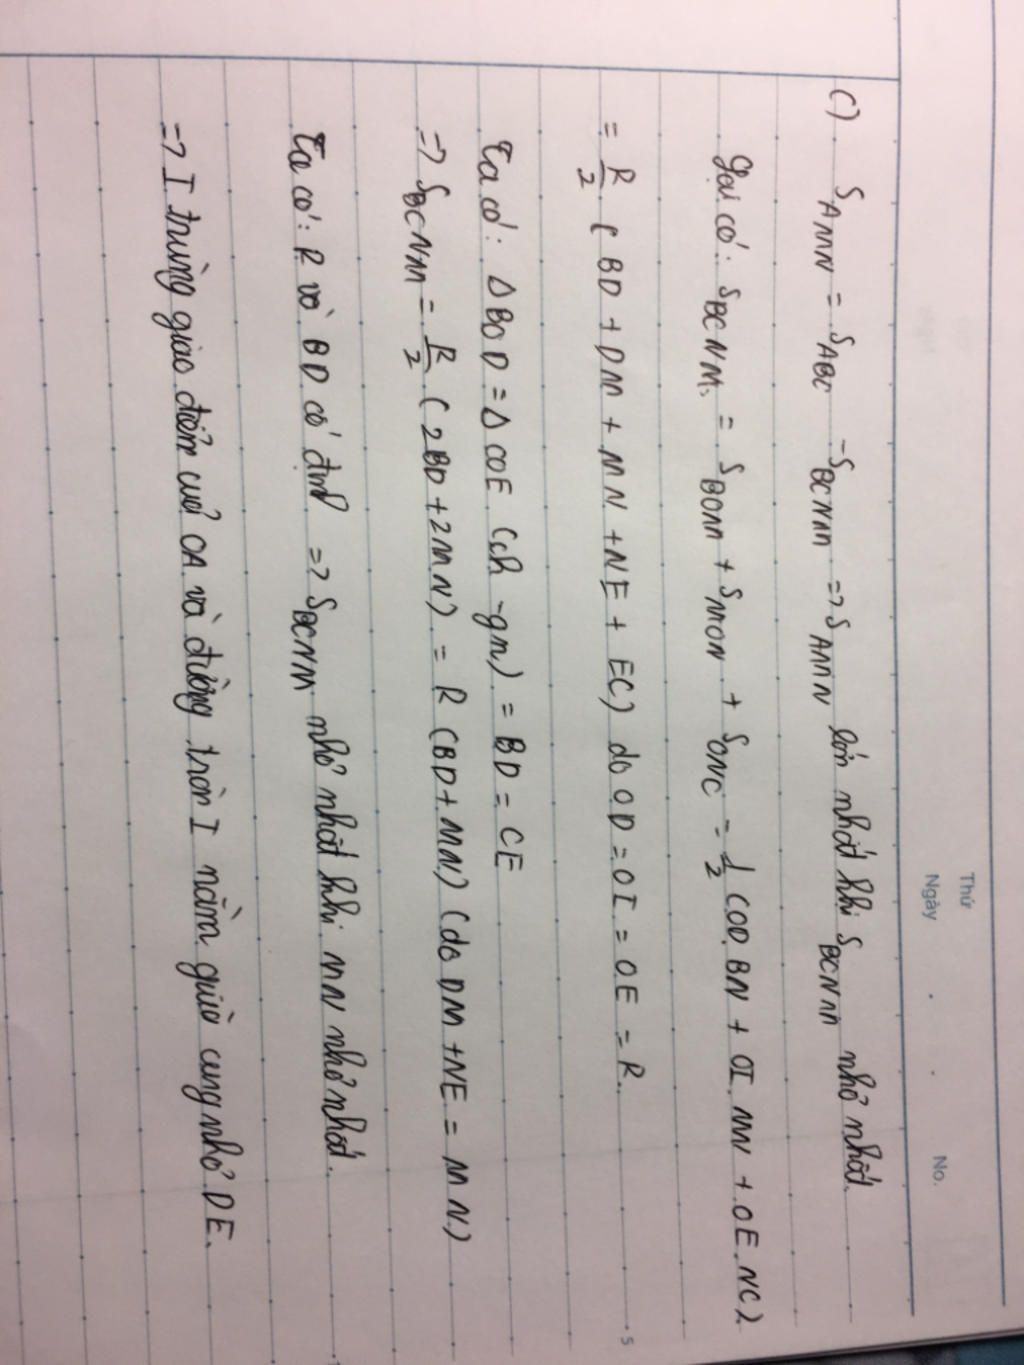 Thứ
Ngày . . No.
c). S AMN = S ABC - S BCNM => S AMN lớn nhất khi S BCNM nhỏ nhất.
Lại có: S BCNM = S BOM + S MON + S ONC = 1/2 (OD. BN + OI. MN + OE. NC).
= R/2 ( BD + DM + MN + NE + EC) do OD = OI = OE = R.
5
Ta có: Δ BOD = Δ COE (ch - gn) = BD = CE
=> S BCNM = R/2 ( 2BD + 2MN) = R (BD + MN) (do DM + NE = MN)
Ta có: R và BD cố định => S BCNM nhỏ nhất khi MN nhỏ nhất.
=> I trùng giao điểm của OA và đường tròn I nằm giữa cung nhỏ DE.